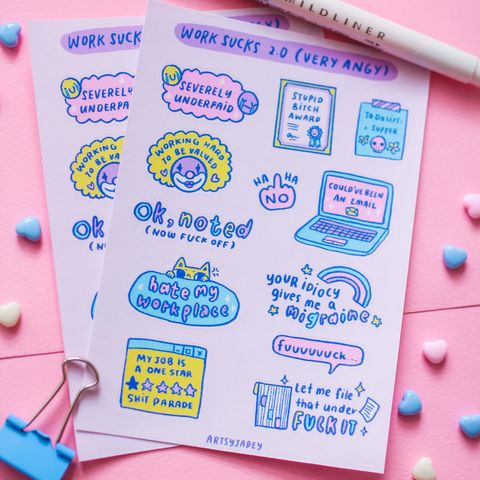 MILDLINER
WORK SUCKS 2.0 (VERY ANGY)
SEVERELY
UNDERPAID
STUPID
BITCH
AWARD
TO DO LIST:
• SUFFER
WORKING HARD
TO BE VALUES
HA HA
NO
COULD'VE BEEN
AN EMAIL
OK, noted
(NOW FUCK OFF)
hate my
workplace
your idiocy
gives me a
migraine
MY JOB IS
A ONE STAR
SHIT PARADE
fuuuuuuck..
Let me file
that under
FUCK IT
ARTSYJADEY
WORK SUCK
SEVERELY
UNDERPA
WORKING
TO BE VA
OK,
(N